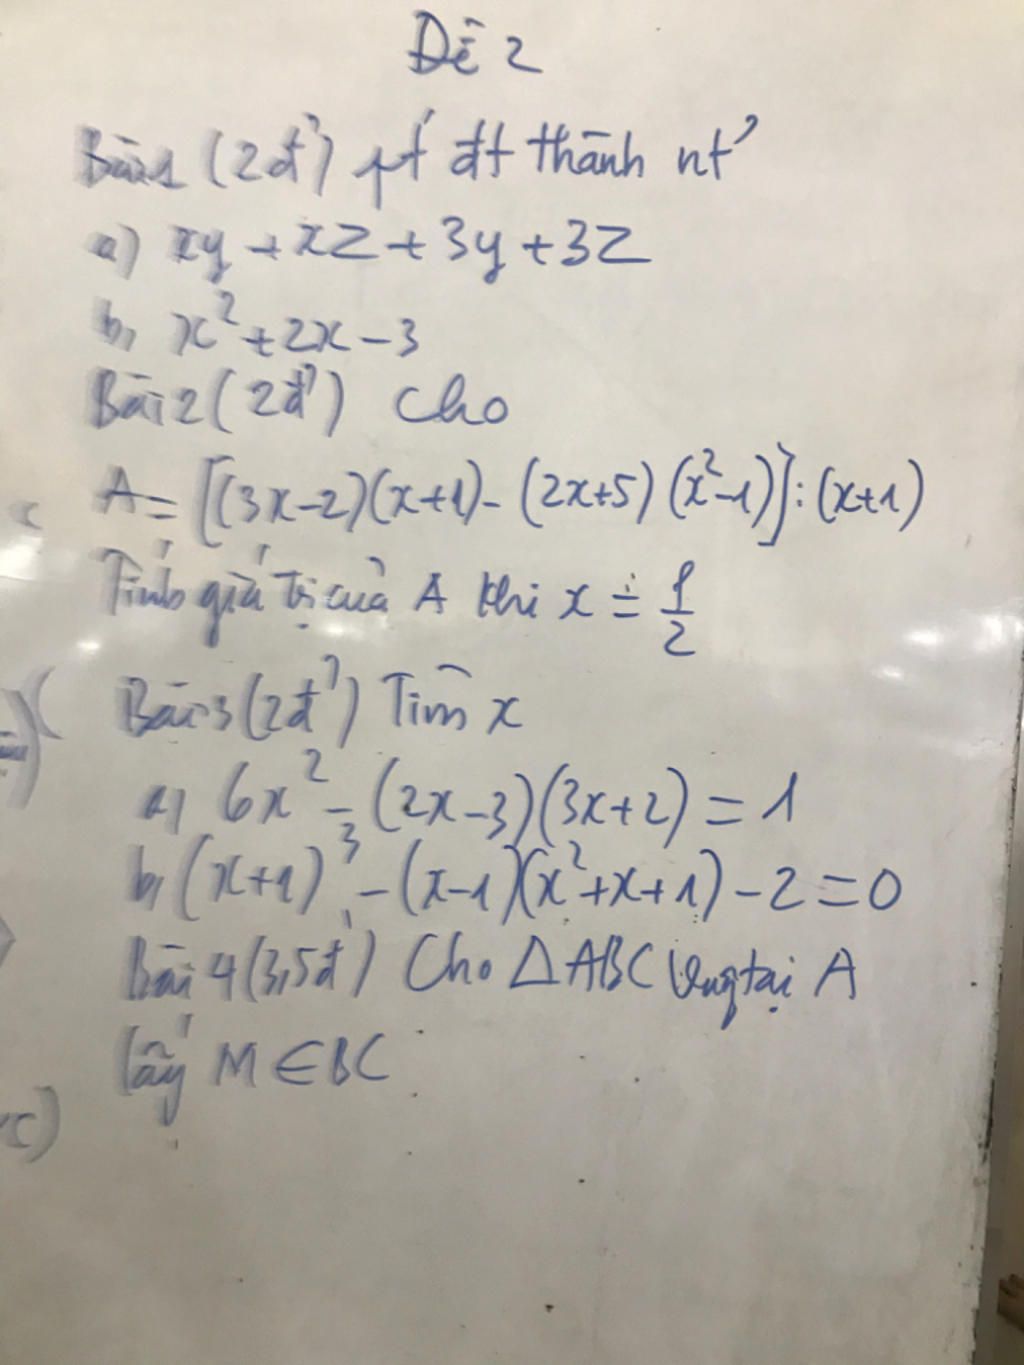 Đề 2
Bài 1 (2đ') pt' đt thành nt'
a) xy + xz + 3y + 3z
b, x² + 2x - 3
Bài 2 (2đ') Cho
A = [(3x-2)(x+1) - (2x+5)(x²-1)] : (x+1)
Tính giá trị của A khi x = 1/2
Bài 3 (2đ') Tìm x
a, 6x² - (2x-3)(3x+2) = 1
b, (x+1)³ - (x-1)(x²+x+1) - 2 = 0
Bài 4 (3,5đ') Cho △ABC Vug tại A
lấy M ∈ BC